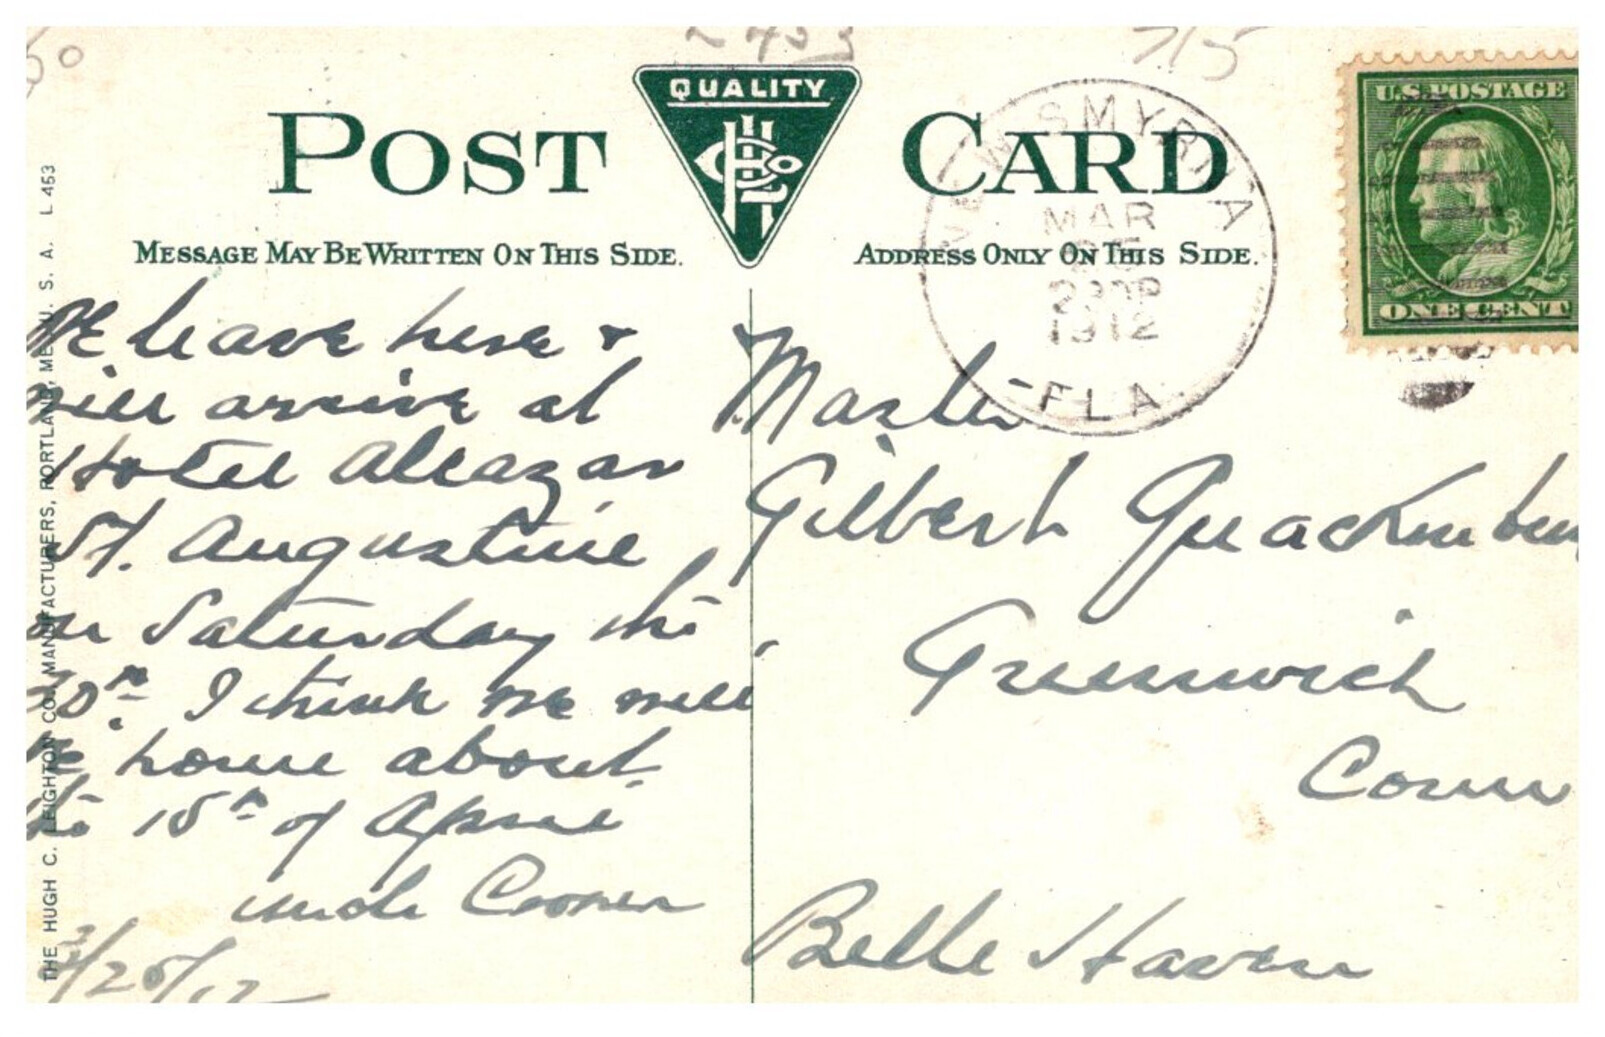 2453
715
QUALITY
POST CARD
MESSAGE MAY BE WRITTEN ON THIS SIDE.
ADDRESS ONLY ON THIS SIDE.
U.S. POSTAGE
ONE CENT
NEW SMYRNA
MAR
25
1912
FLA.
THE HUGH C. LEIGHTON CO., MANUFACTURERS, PORTLAND, ME. U. S. A. L 453
We leave here &
will arrive at
Hotel Alcazar
St. Augustine
on Saturday the
30th. I think we will
be home about
the 15th of April
Uncle
3/25/12
Master
Gilbert
Greenwich
Conn
Belle Haven